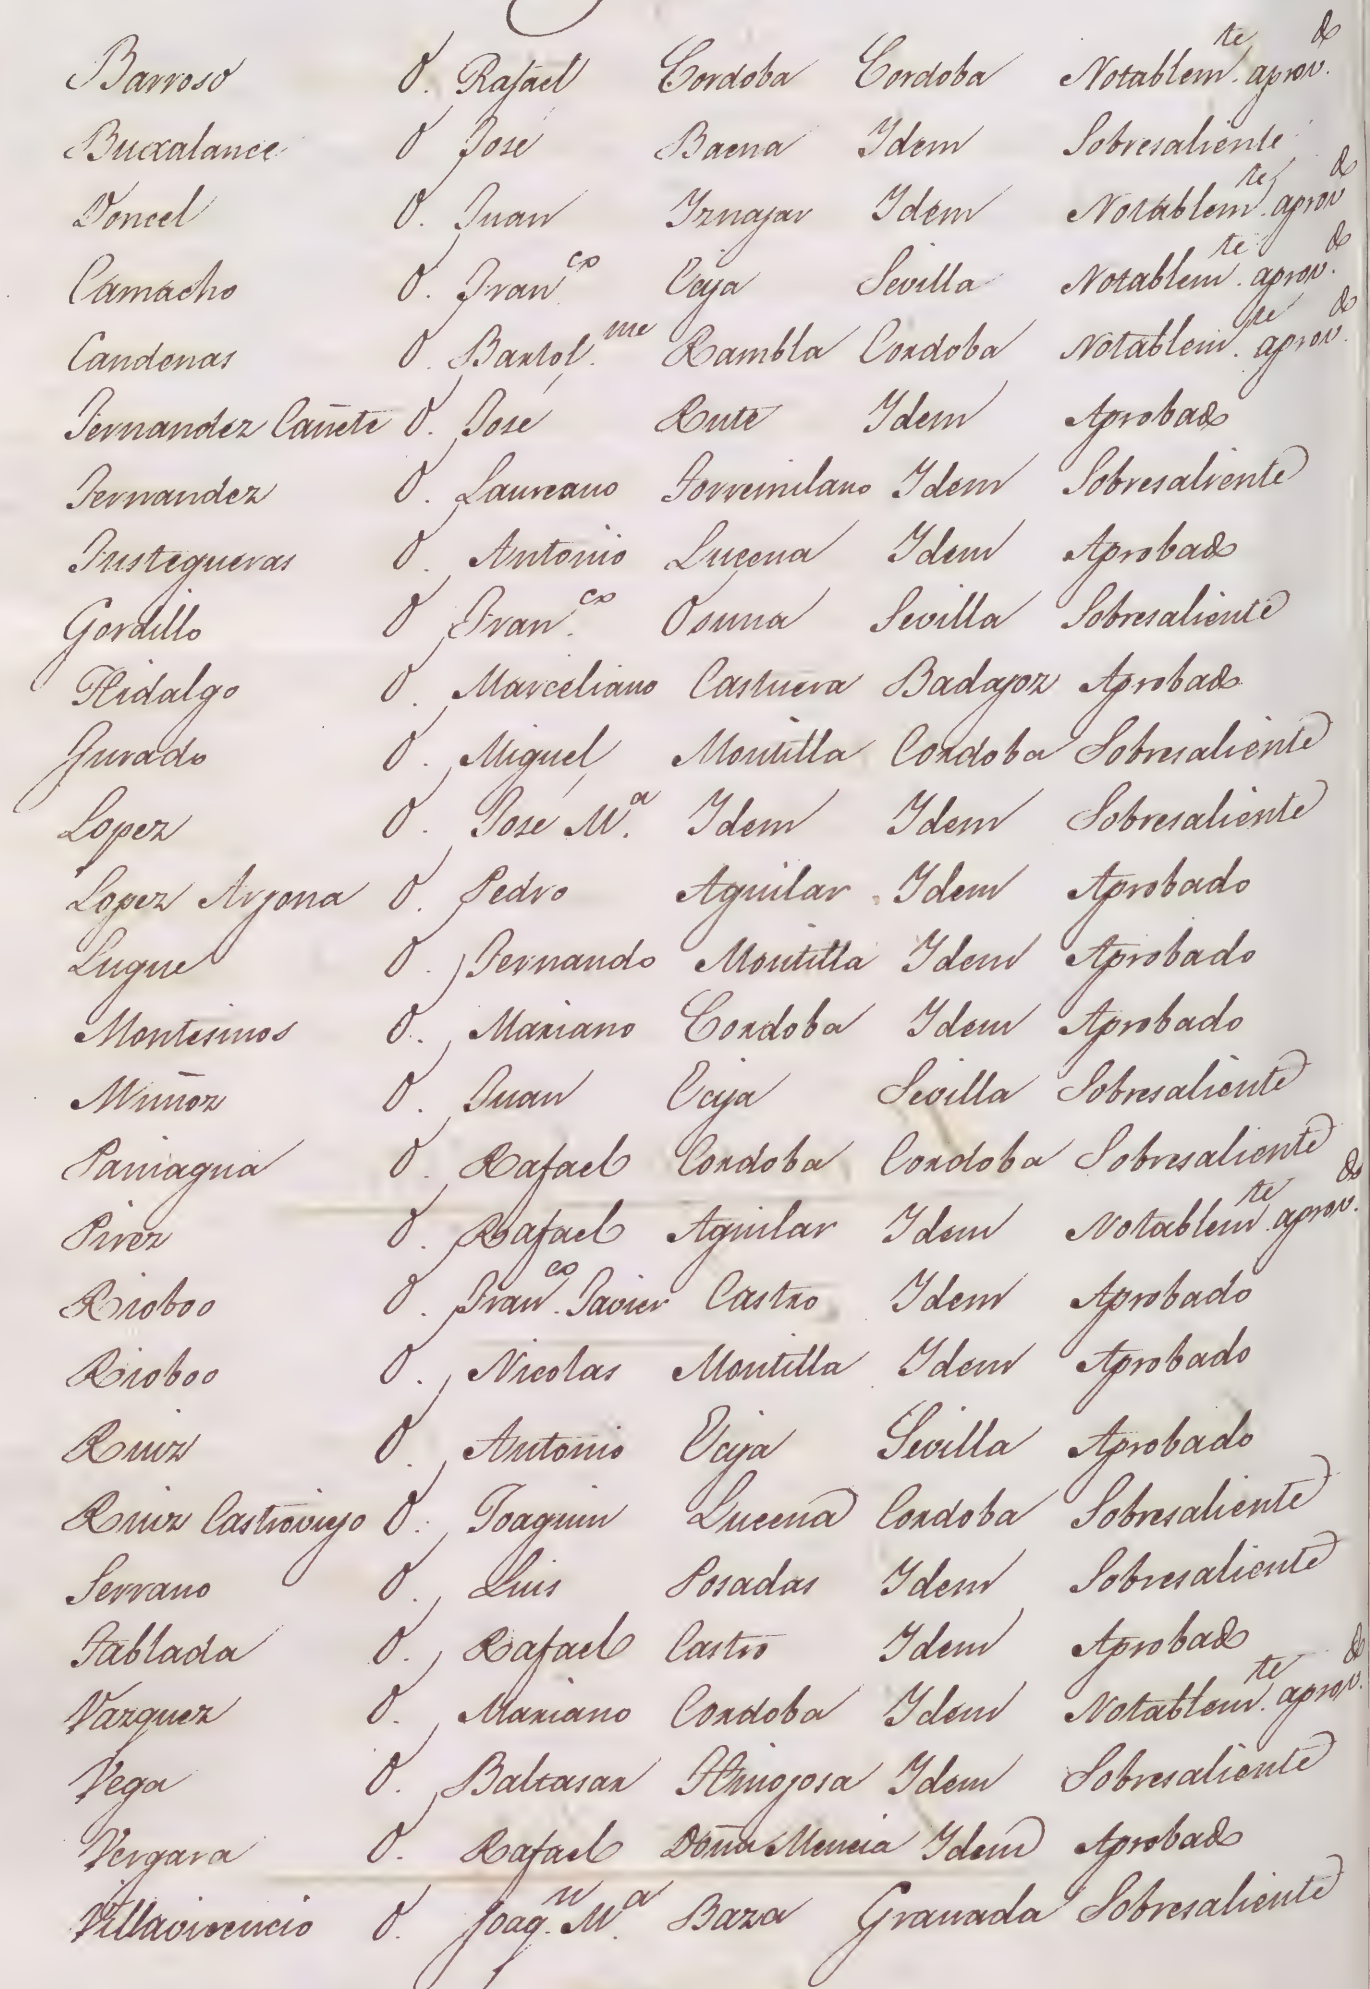 Barroso D. Rafael Cordoba Cordoba Notablem.te aprov.do
Buxalance D José Baena Idem Sobresaliente
Doncel D. Juan Iznajar Idem Notablem.te aprov.do
Camacho D. Fran.co Ecija Sevilla Notablem.te aprov.do
Candenas D. Bartol.me Rambla Cordoba Notablem.te aprov.do
Fernandez Cañete D. José Rute Idem Aprobado
Fernandez D. Laureano Torremilano Idem Sobresaliente
Fustegueras D. Antonio Lucena Idem Aprobado
Gordillo D Fran.co Osuna Sevilla Sobresaliente
Hidalgo D. Marceliano Castuera Badajoz Aprobado
Jurado D. Miguel Montilla Cordoba Sobresaliente
Lopez D. José M.a Idem Idem Sobresaliente
Lopez Arjona D. Pedro Aguilar Idem Aprobado
Luque D. Fernando Montilla Idem Aprobado
Montesinos D. Mariano Cordoba Idem Aprobado
Muñoz D. Juan Ecija Sevilla Sobresaliente
Paniagua D. Rafael Cordoba Cordoba Sobresaliente
Pirez D. Rafael Aguilar Idem Notablem.te aprov.do
Rioboo D. Fran.co Javier Castro Idem Aprobado
Rioboo D. Nicolas Montilla Idem Aprobado
Ruiz D. Antonio Ecija Sevilla Aprobado
Ruiz Castroviejo D. Joaquin Lucena Cordoba Sobresaliente
Serrano D. Luis Posadas Idem Sobresaliente
Tablada D. Rafael Castro Idem Aprobado
Vazquez D. Mariano Cordoba Idem Notablem.te aprov.do
Vega D. Baltasar Hinojosa Idem Sobresaliente
Vergara D. Rafael Doña Mencia Idem Aprobado
Villavicencio D. Joaq.n M.a Baza Granada Sobresaliente